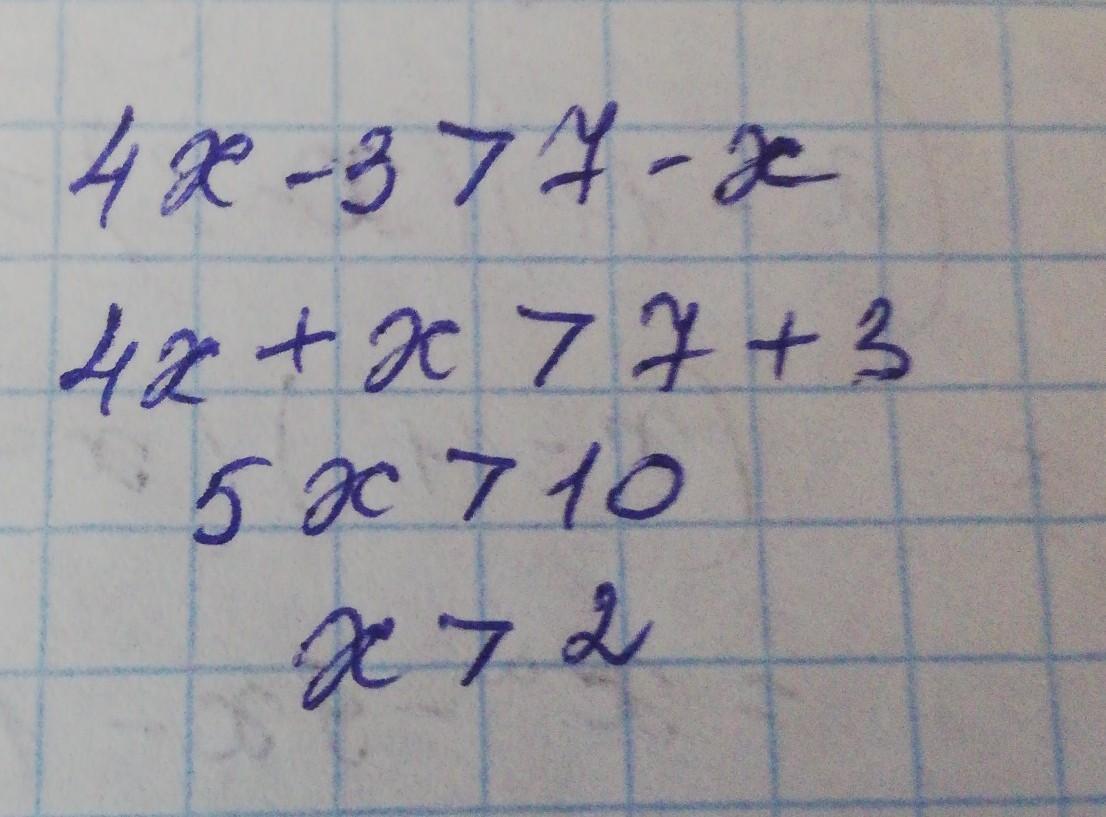 4x - 3 > 7 - x
4x + x > 7 + 3
5x > 10
x > 2